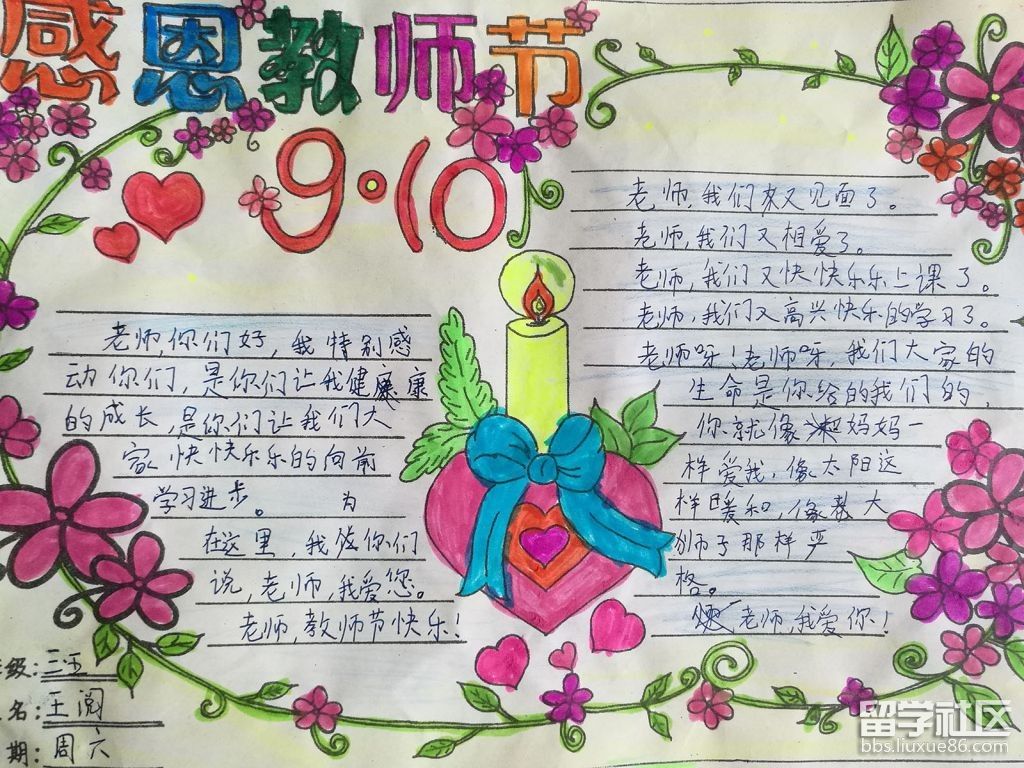 感恩教师节
9·10
老师,你们好,我特别感
动你们,是你们让我健康
的成长,是你们让我们大
家快快乐乐的向前
学习进步。 为
在这里,我 你们
说,老师,我爱您。
老师,教师节快乐!
老师,我们来又见面了。
老师,我们又相爱了。
老师,我们又快快乐乐上课了。
老师,我们又高兴快乐的学习了。
老师呀!老师呀,我们大家的
生命是你给的我们的,
你就像 妈妈一
样爱我,像太阳这
样暖和,像 大
狮子那样严
格。
老师,我爱你!
级:三五
名:王阅
期:周六
留学社区
bbs.liuxue86.com